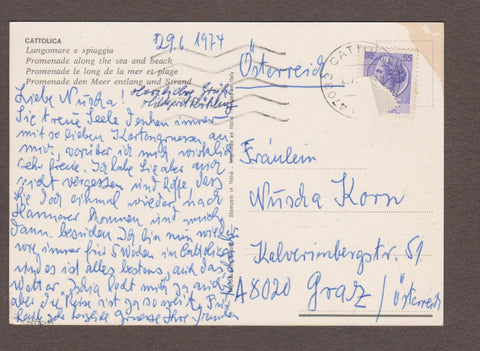 CATTOLICA
Lungomare e spiaggia
Promenade along the sea and beach
Promenade le long de la mer et plage
Promenade den Meer entlang und Strand
29.6 1974
Österreich
47033 CATTOLICA
55
Liebe Nuscha! Herzliche Grüße
Sie treue Seele denken immer
mit so lieben Kartengruessen an
mich, worüber ich mich wirklich
sehr freue. Ich habe Sie aber auch
nicht vergessen und hoffe, dass
Sie doch einmal wieder nach
Hannover kommen und mich
dann besuchen. Ich bin nun wieder
wie immer für Wochen in Cattolica
und es ist alles bestens, auch das
Wetter,
aber die Reise ist ja so weit.
herzliche Grüsse Ihre
Stampato in Italia
Fräulein
Nuscha Korn
Kalvarienbergstr. 51
A 8020 Graz / Österreich